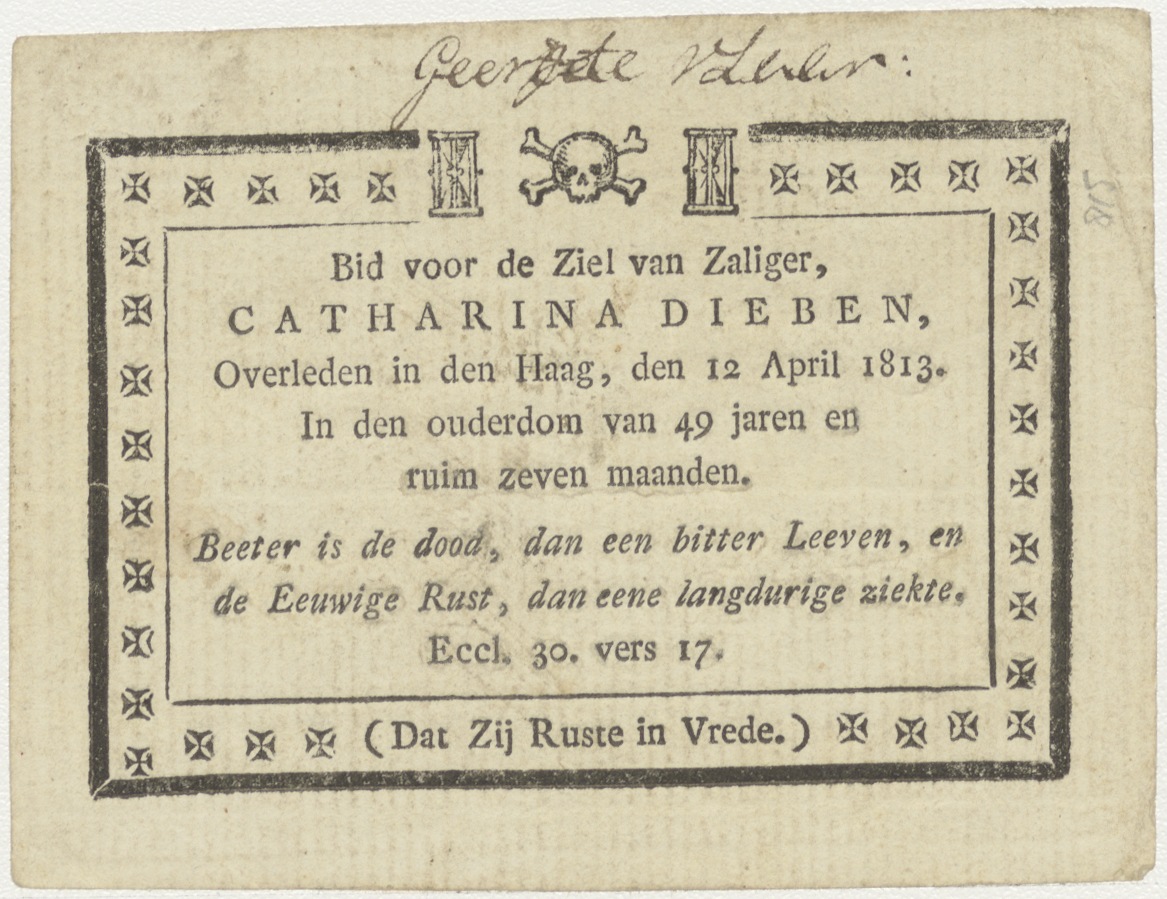 Bid voor de Ziel van Zaliger,
CATHARINA DIEBEN,
Overleden in den Haag, den 12 April 1813.
In den ouderdom van 49 jaren en
ruim zeven maanden.
Beeter is de dood, dan een bitter Leeven, en
de Eeuwige Rust, dan eene langdurige ziekte.
Eccl. 30. vers 17.
(Dat Zij Ruste in Vrede.)